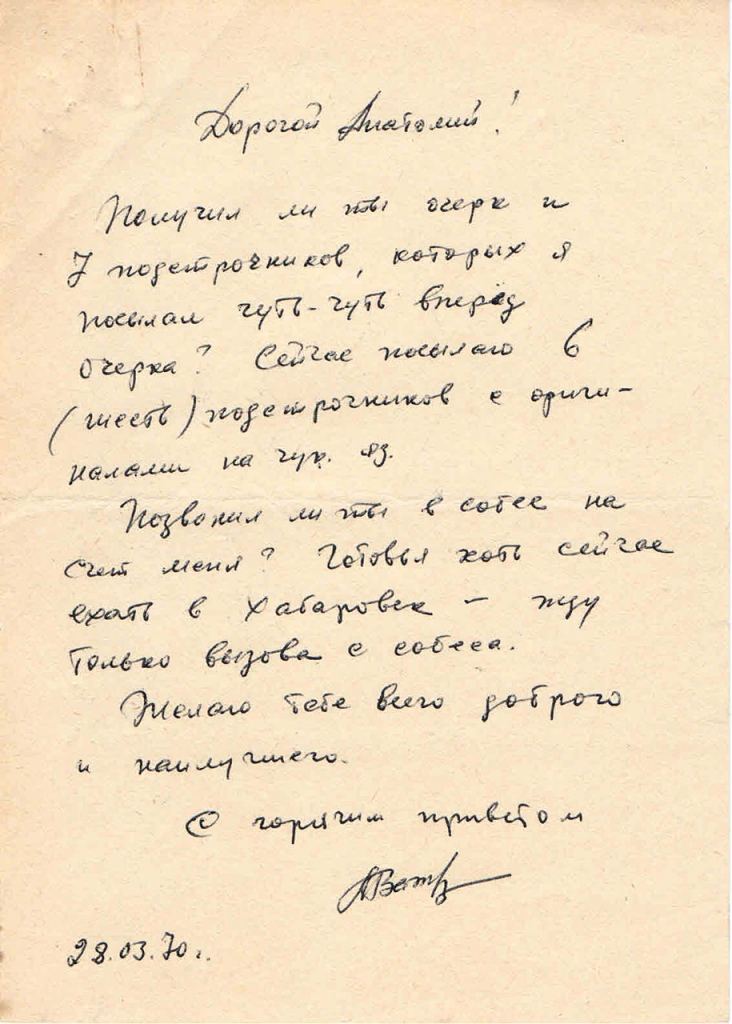 Дорогой Анатолий!
Получил ли ты очерк и
7 подстрочников, которых я
посылал чуть-чуть вперед
очерка? Сейчас посылаю 6
(шесть) подстрочников с ориги-
налами на чук. яз.
Позвонил ли ты в собес на
счет меня? Готовья хоть сейчас
ехать в Хабаровск – жду
только вызова с собеса.
Желаю тебе всего доброго
и наилучшего.
С горячим приветом
28.03.70г.